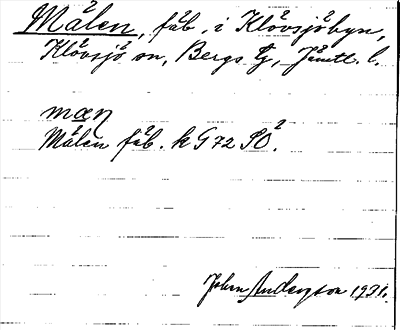 Målen, fäb. i Klövsjöbyn,
Klövsjö sn, Bergs tg, Jämtl. l.
mαn
Målen fäb. k G 72 SÖ.
John Anderson 1931.